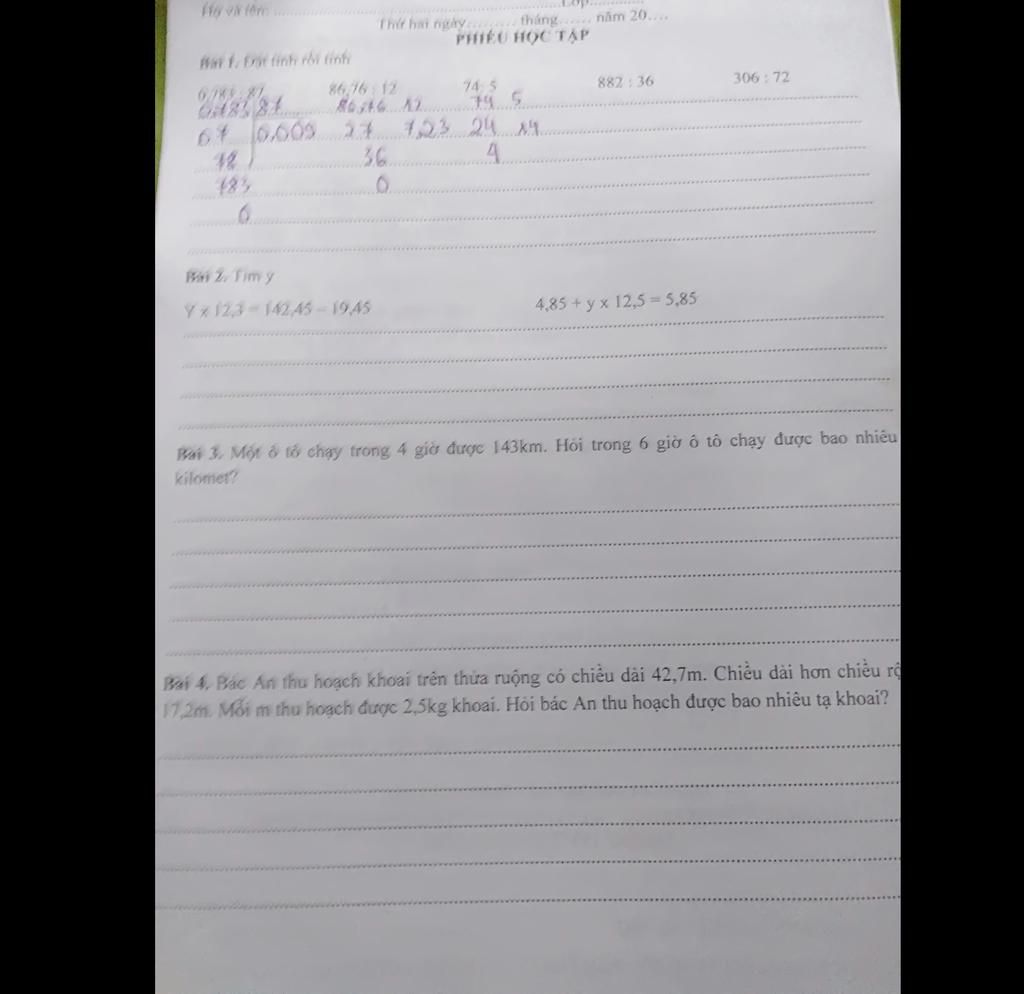 Họ và tên: ........ Lớp........
Thứ hai ngày........ tháng...... năm 20....
PHIẾU HỌC TẬP
Bài 1. Đặt tính rồi tính
0,783 : 87 86,76 : 12 74: 5 882 : 36 306 : 72
0,783 87 86,76 12 74 5
0,009 27 7,23 24 14
78 36 4
783 0
0
Bài 2. Tìm y
Y x 12,3 = 142,45 – 19,45 4,85 + y x 12,5 = 5,85
Bài 3. Một ô tô chạy trong 4 giờ được 143km. Hỏi trong 6 giờ ô tô chạy được bao nhiêu
kilomet?
Bài 4. Bác An thu hoạch khoai trên thửa ruộng có chiều dài 42,7m. Chiều dài hơn chiều rộ
17,2m. Mỗi m thu hoạch được 2,5kg khoai. Hỏi bác An thu hoạch được bao nhiêu tạ khoai?